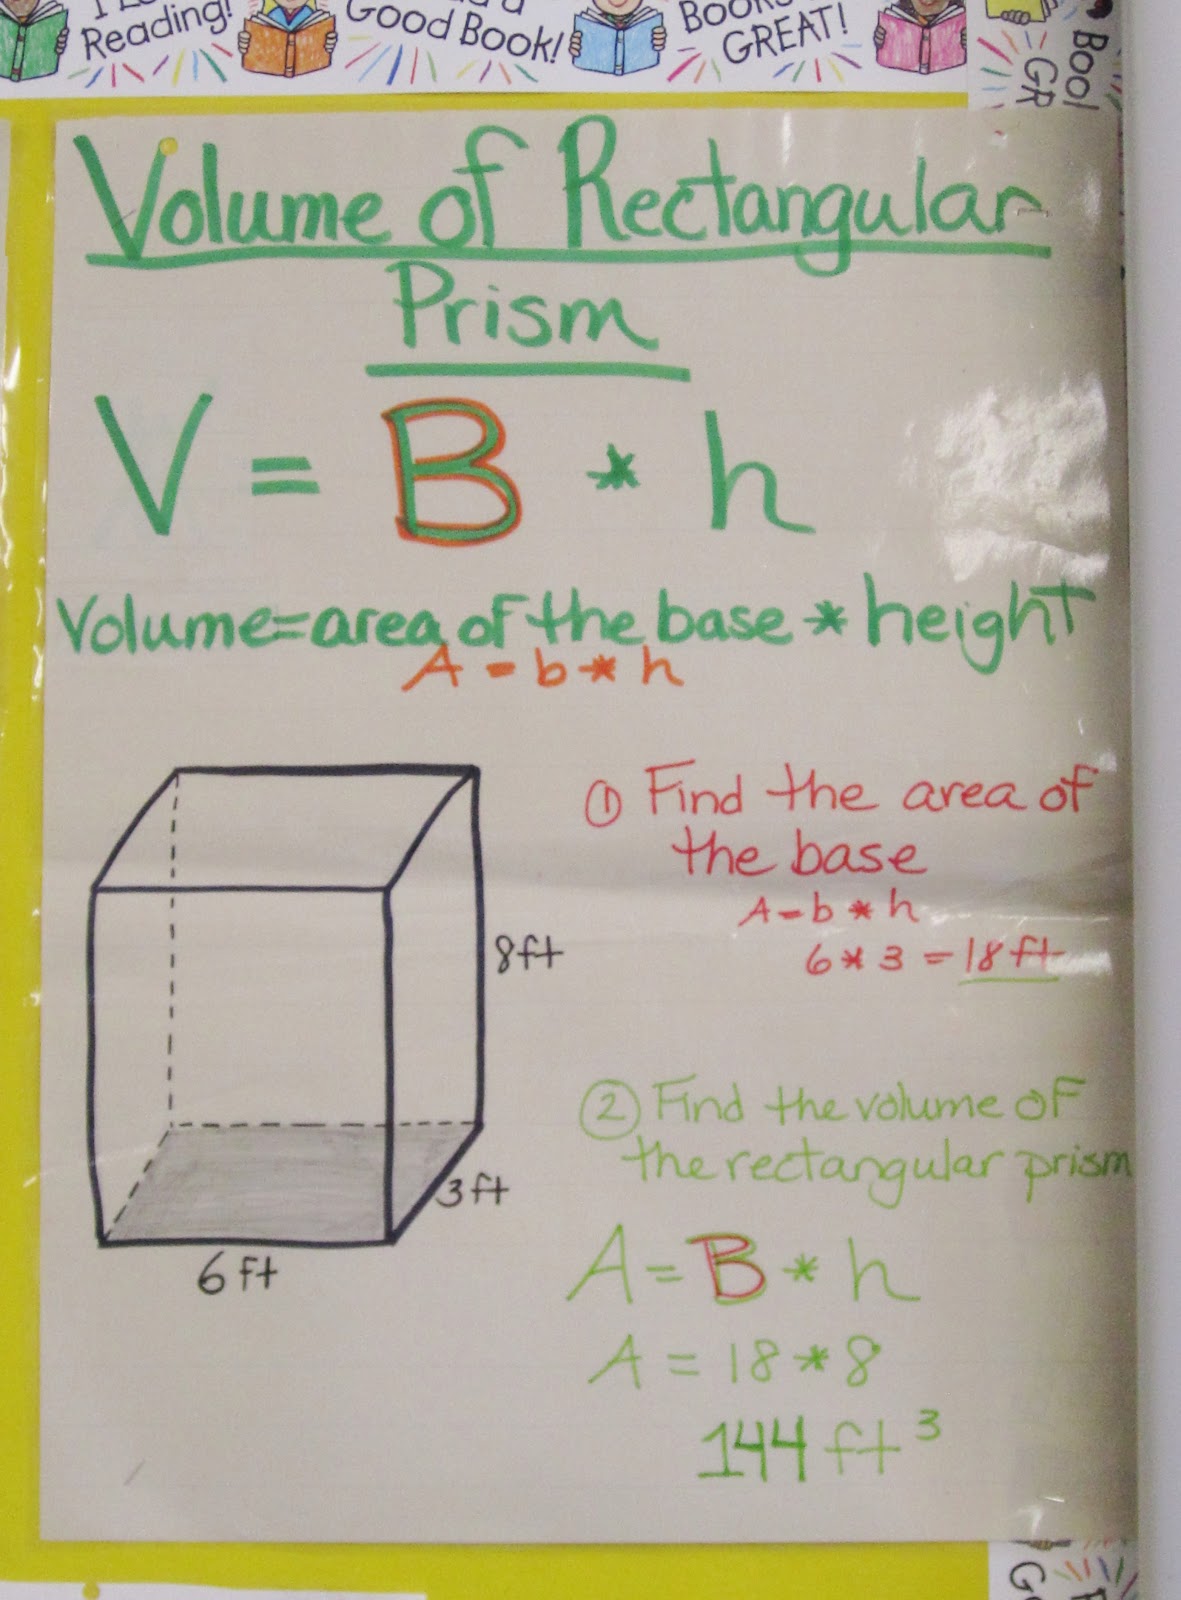 Reading!
Good Book!
GREAT!
Volume of Rectangular
Prism
V = B * h
Volume=area of the base * height
A = b * h
8ft
3ft
6ft
① Find the area of
the base
A=b * h
6 * 3 = 18ft
② Find the volume of
the rectangular prism
A = B * h
A = 18 * 8
144 ft³